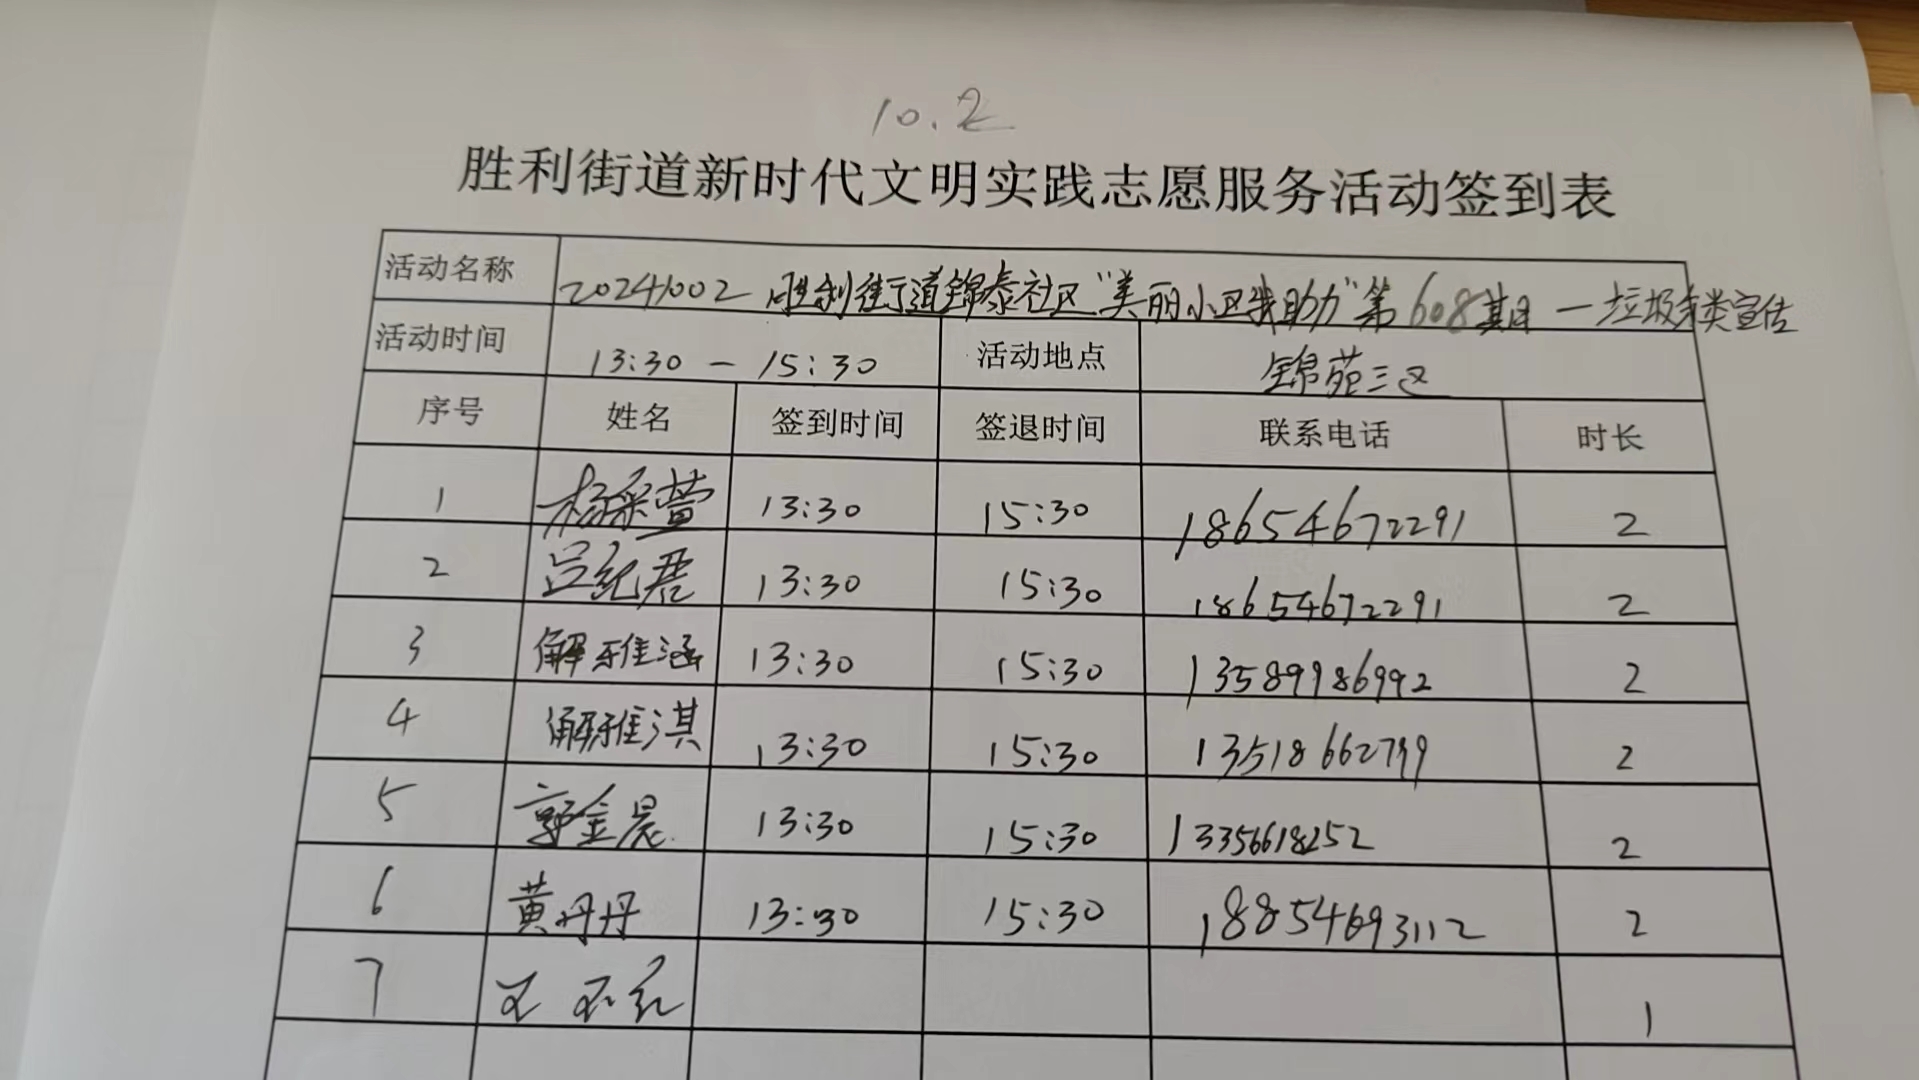 10.2
胜利街道新时代文明实践志愿服务活动签到表
活动名称 20241002 胜利街道锦泰社区“美丽小区我助力”第608期 一垃圾分类宣传
活动时间 13:30 — 15:30 活动地点 锦苑三区
序号 姓名 签到时间 签退时间 联系电话 时长
1 杨采萱 13:30 15:30 18654672291 2
2 吕纪君 13:30 15:30 18654672291 2
3 解雅涵 13:30 15:30 13589986992 2
4 解雅淇 13:30 15:30 13518662799 2
5 郭金晨 13:30 15:30 13356618252 2
6 黄丹丹 13:30 15:30 18854693112 2
7 1